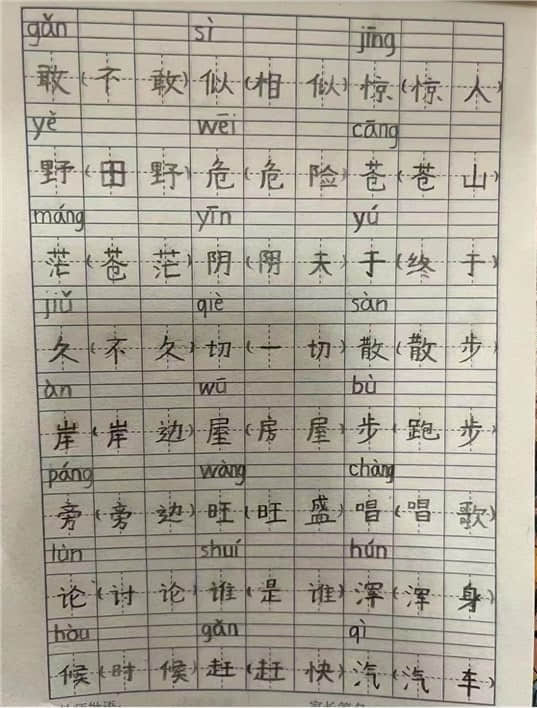 gǎn sì jīng
敢(不敢)似(相似)惊(惊人)
yě wēi cāng
野(田野)危(危险)苍(苍山)
máng yīn yú
茫(苍茫)阴(阴天)于(终于)
jiǔ qiè sàn
久(不久)切(一切)散(散步)
àn wū bù
岸(岸边)屋(房屋)步(跑步)
páng wàng chàng
旁(旁边)旺(旺盛)唱(唱歌)
lùn shuí hún
论(讨论)谁(是谁)浑(浑身)
hòu gǎn qì
候(时候)赶(赶快)汽(汽车)